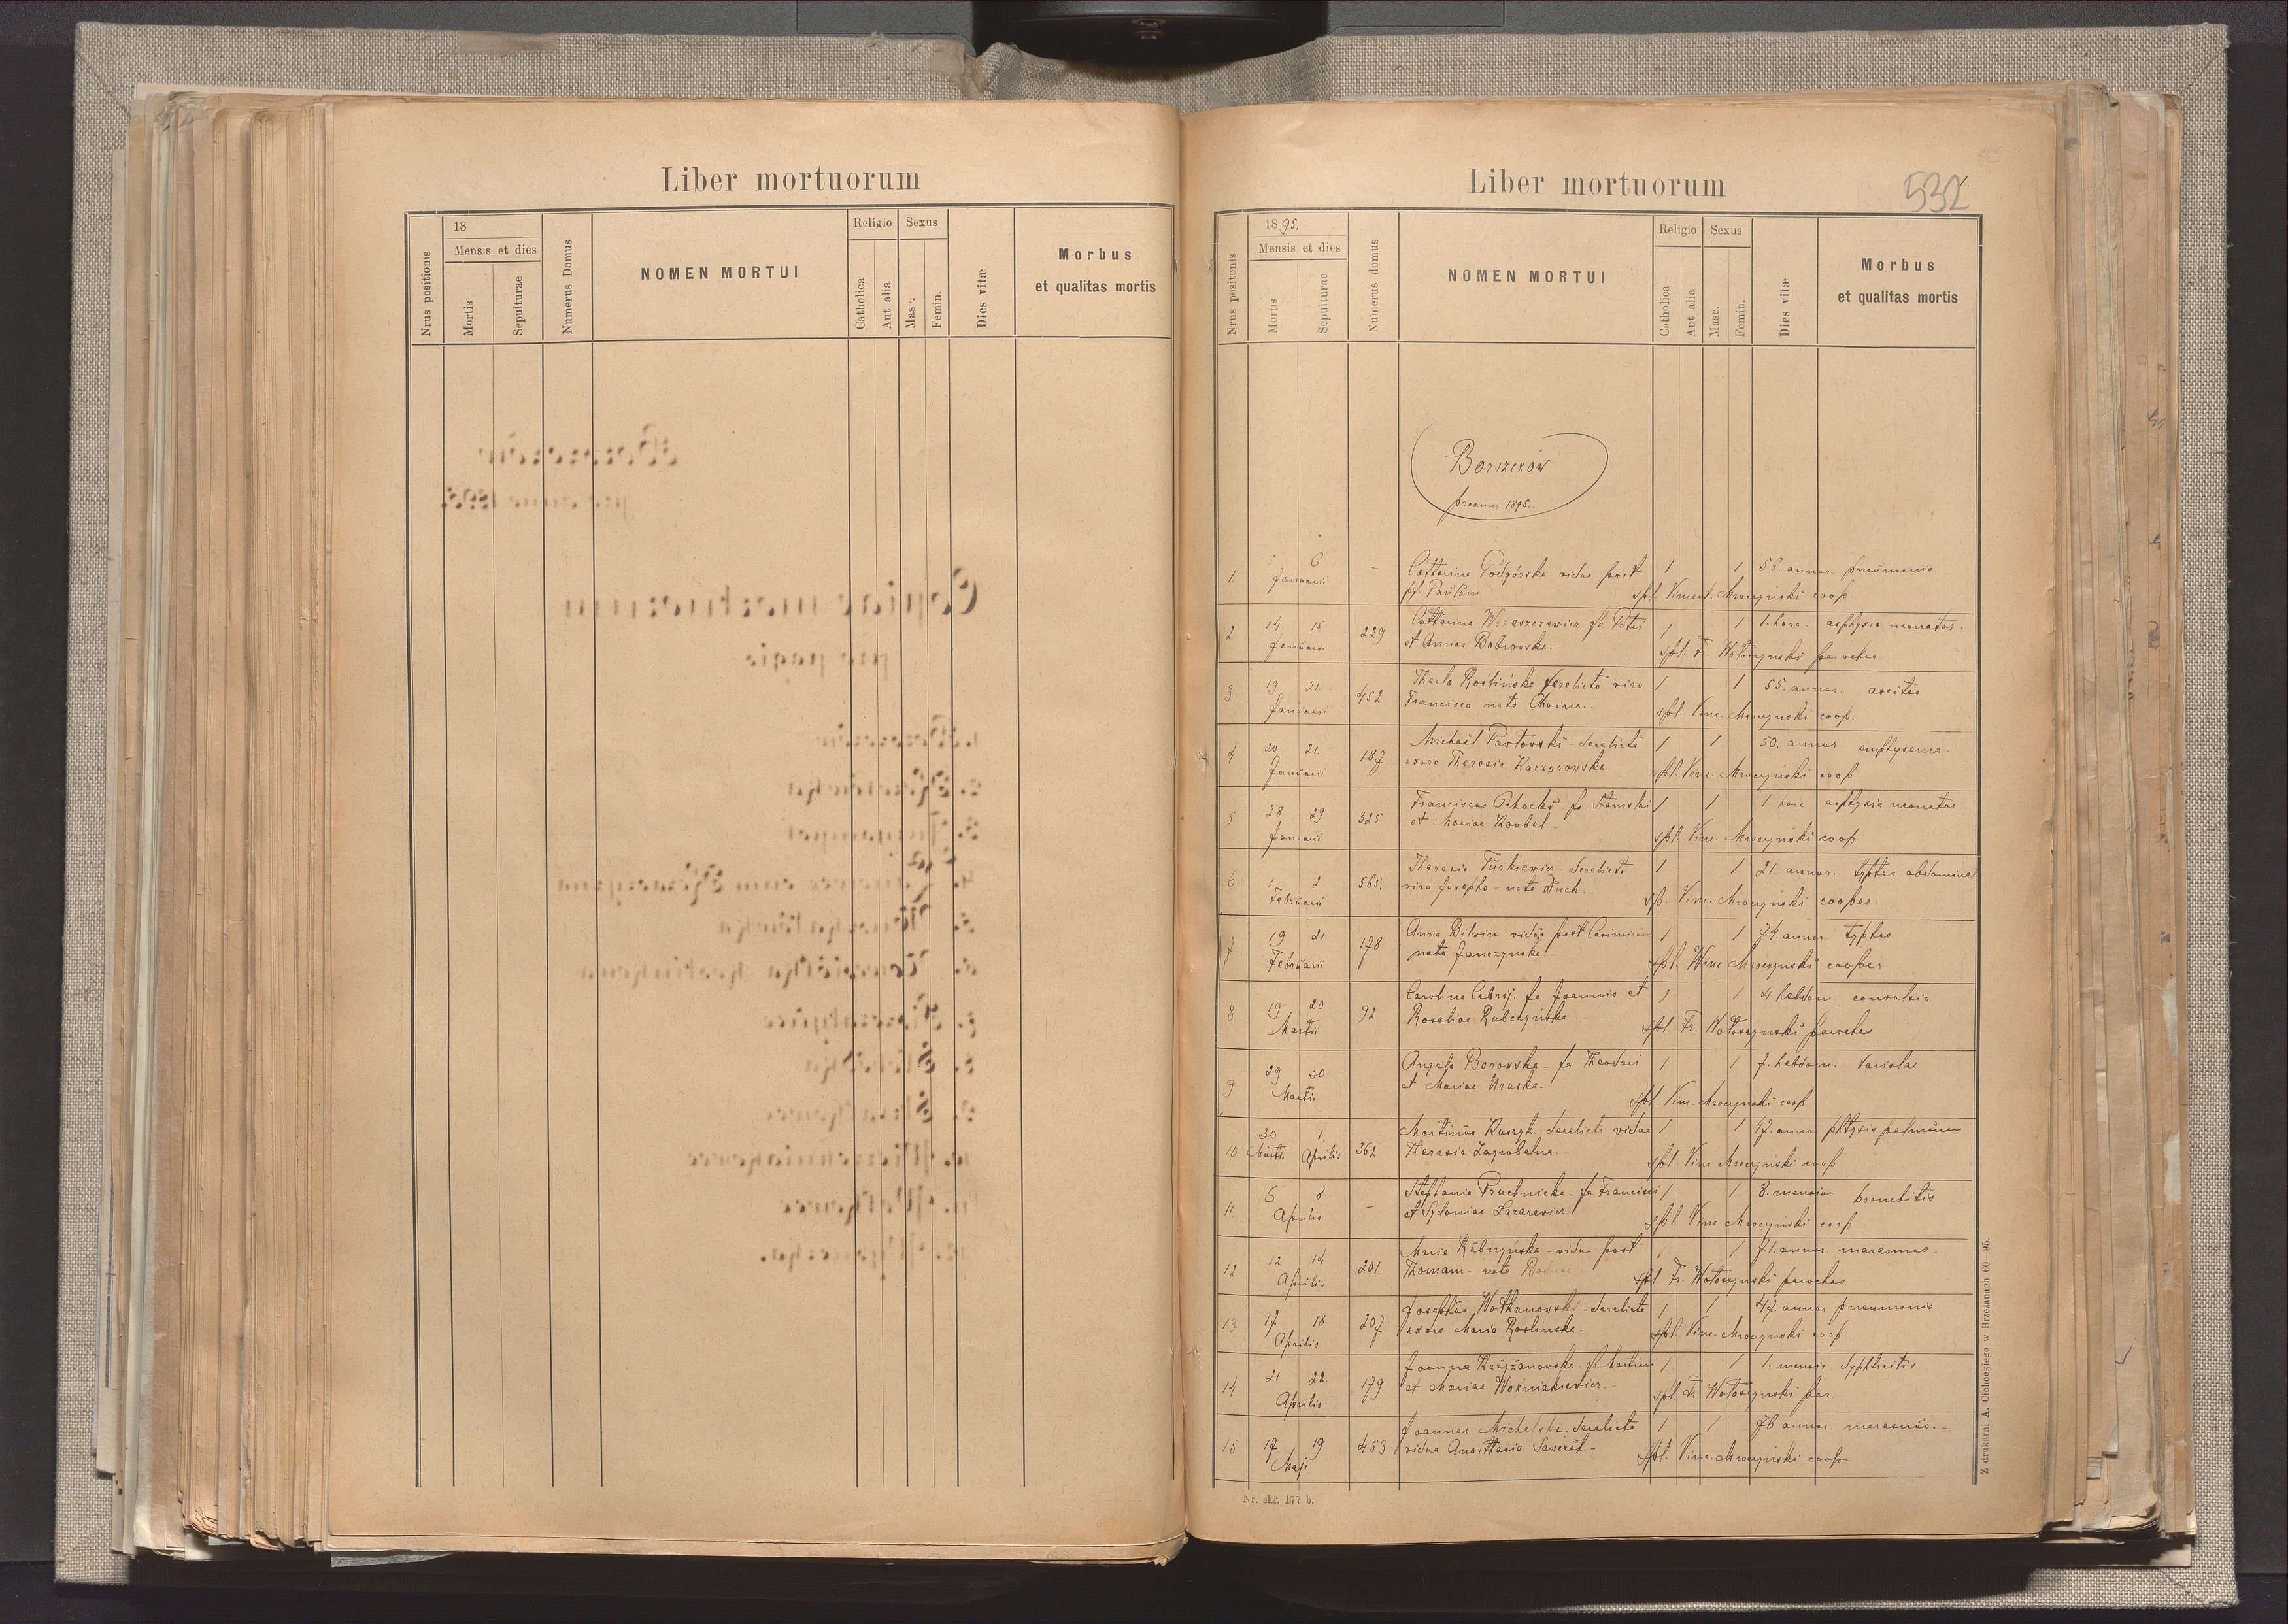 Liber mortuorum
18
Mensis et dies
Nrus positionis
Mortis
Sepulturae
Numerus Domus
NOMEN MORTUI
Religio
Catholica
Aut alia
Sexus
Masc.
Femin.
Dies vitæ
Morbus
et qualitas mortis
Liber mortuorum
532
1895.
Mensis et dies
Nrus positonis
Mortis
Sepulturae
Numerus domus
NOMEN MORTUI
Religio
Catholica
Aut alia
Sexus
Masc.
Femin.
Dies vitæ
Morbus
et qualitas mortis
Borszczów
pro anno 1895.
1. 5 6 – Catharina Podgórska vidua post 1 1 annor. pneumonia
Januarii Paulum spl. Vincent. Mroczynski coop.
2 14 15 229 Catharina fa. Petri 1 1 1. hora. asphyxia neonator.
Januarii et Annae Bobrowska. spl. Fr. Wołoszynski parochus.
3 19 21. 452 Thecla Roślińska derelicto viro 1 1 55. annor. ascites
Januarii Francisco nata Choina. spl. Vinc. Mroczynski coop.
4 20 21. 187 Michaël Pawłowski - derelicta 1 1 50. annor emphysema.
Januarii uxore Theresia Kaczorowska. spl. Vinc. Mroczyński coop
5 28 29 325 Franciscus Ochocki fs. Stanislai 1 1 1 hora asphyxia neonator
Januarii et Mariae spl. Vinc. Mroczyński coop
6 1 2 565. Theresia Turkiewicz - derelicto 1 1 21. annor. typhus abdominal
Februarii viro Josepho - nata Duch. spl. Vinc. Mroczyński cooper.
7 19 21 178 Anna vidua post Casimirum 1 1 74. annor. typhus
Februarii nata Janczynska. spl. Winc Mroczynski cooper
8 19 20 92 Carolina fa Joannis et 1 1 4 hebdom. convulsio
Martii Rosaliae Rubczyńska spl. Fr. Wołoszynski parochus
9 29 30 – Angela Borowska - fa Theodori 1 1 7. hebdom. Variolae
Martii et Mariae spl. Vinc. Mroczynski coop
10 30 1 362 Martinus derelicta vidua 1 1 47. annor phthysis pulmonum
Martii Aprilis Theresia Zagrobelna. spl. Vinc Mroczyński coop
11. 6 8 – Stephania Pruchnicka - fa Francisci 1 1 8. mensium bronchitis
Aprilis et Sydoniae Lazarewicz spl. Vinc Mroczynski coop
12 12 14 201. Maria Rubczyńska - vidua post 1 1 71. annor. marasmus
Aprilis Thomam - nata Bodnar spl. Fr. Wołoszynski parochus
13 17 18 207 Josephus Wołkanowski - derelicta 1 1 47. annor pneumonia
Aprilis uxore Maria Roslinska. spl. Vinc. Mroczynski coop
14 21 22. 179 Joanna - fa Martini 1 1 1. mensis Syphlicitis
Aprilis et Mariae Woźniakiewicz. spl. Fr. Wołoszynski par.
15 17 19 453 Joannes derelicta 1 1 76. annor. marasmus.
Maji vidua Anasthasia spl. Vinc. Mroczyński coop
Nr. skł. 177 b.
Z drukarni A. Cichockiego w Brzeżanach 60—95.